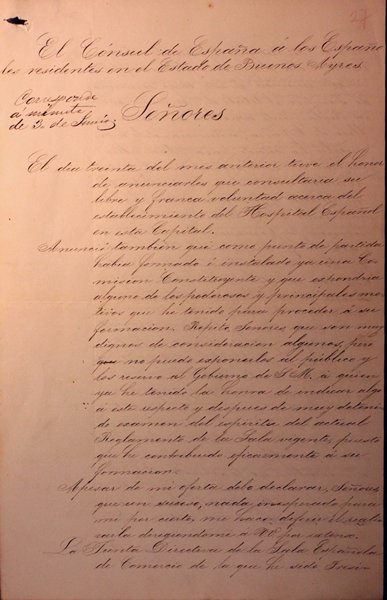 27
El Cónsul de España á los Españo
les residentes en el Estado de Buenos Ayres
Corresponde
á minuta
de 2. de Junio
Señores
El dia treinta del mes anterior tuve el honor
de anunciarles que consultaria su
libre y franca voluntad acerca del
establecimiento del Hospital Español
en esta Capital.
Anuncié tambien que como punto de partida
habia formado é instalado ya una Co
mision Constituyente y que espondria
alguno de los poderosos y principales mo
tivos que he tenido para proceder á su
formacion. Repito, Señores que son muy
dignos de consideracion algunos, pero
que no puedo esponerlos al público y
los reservo al Gobierno de S.M. á quien
ya he tenido la honra de indicar algo
á este respecto y despues de muy deteni
do ecsamen del espiritu del actual
Reglamento de la Sala vigente, puesto
que ha contribuido eficazmente á su
formacion.
Apesar de mi oferta debo declarar, Señores
que un suceso, nada inesperado para
mi por cierto, me hace diferir el reali
zarla dirigiendome á VV. por estenso.
La Junta Directiva de la Sala Española
de Comercio de la que he sido Presi-